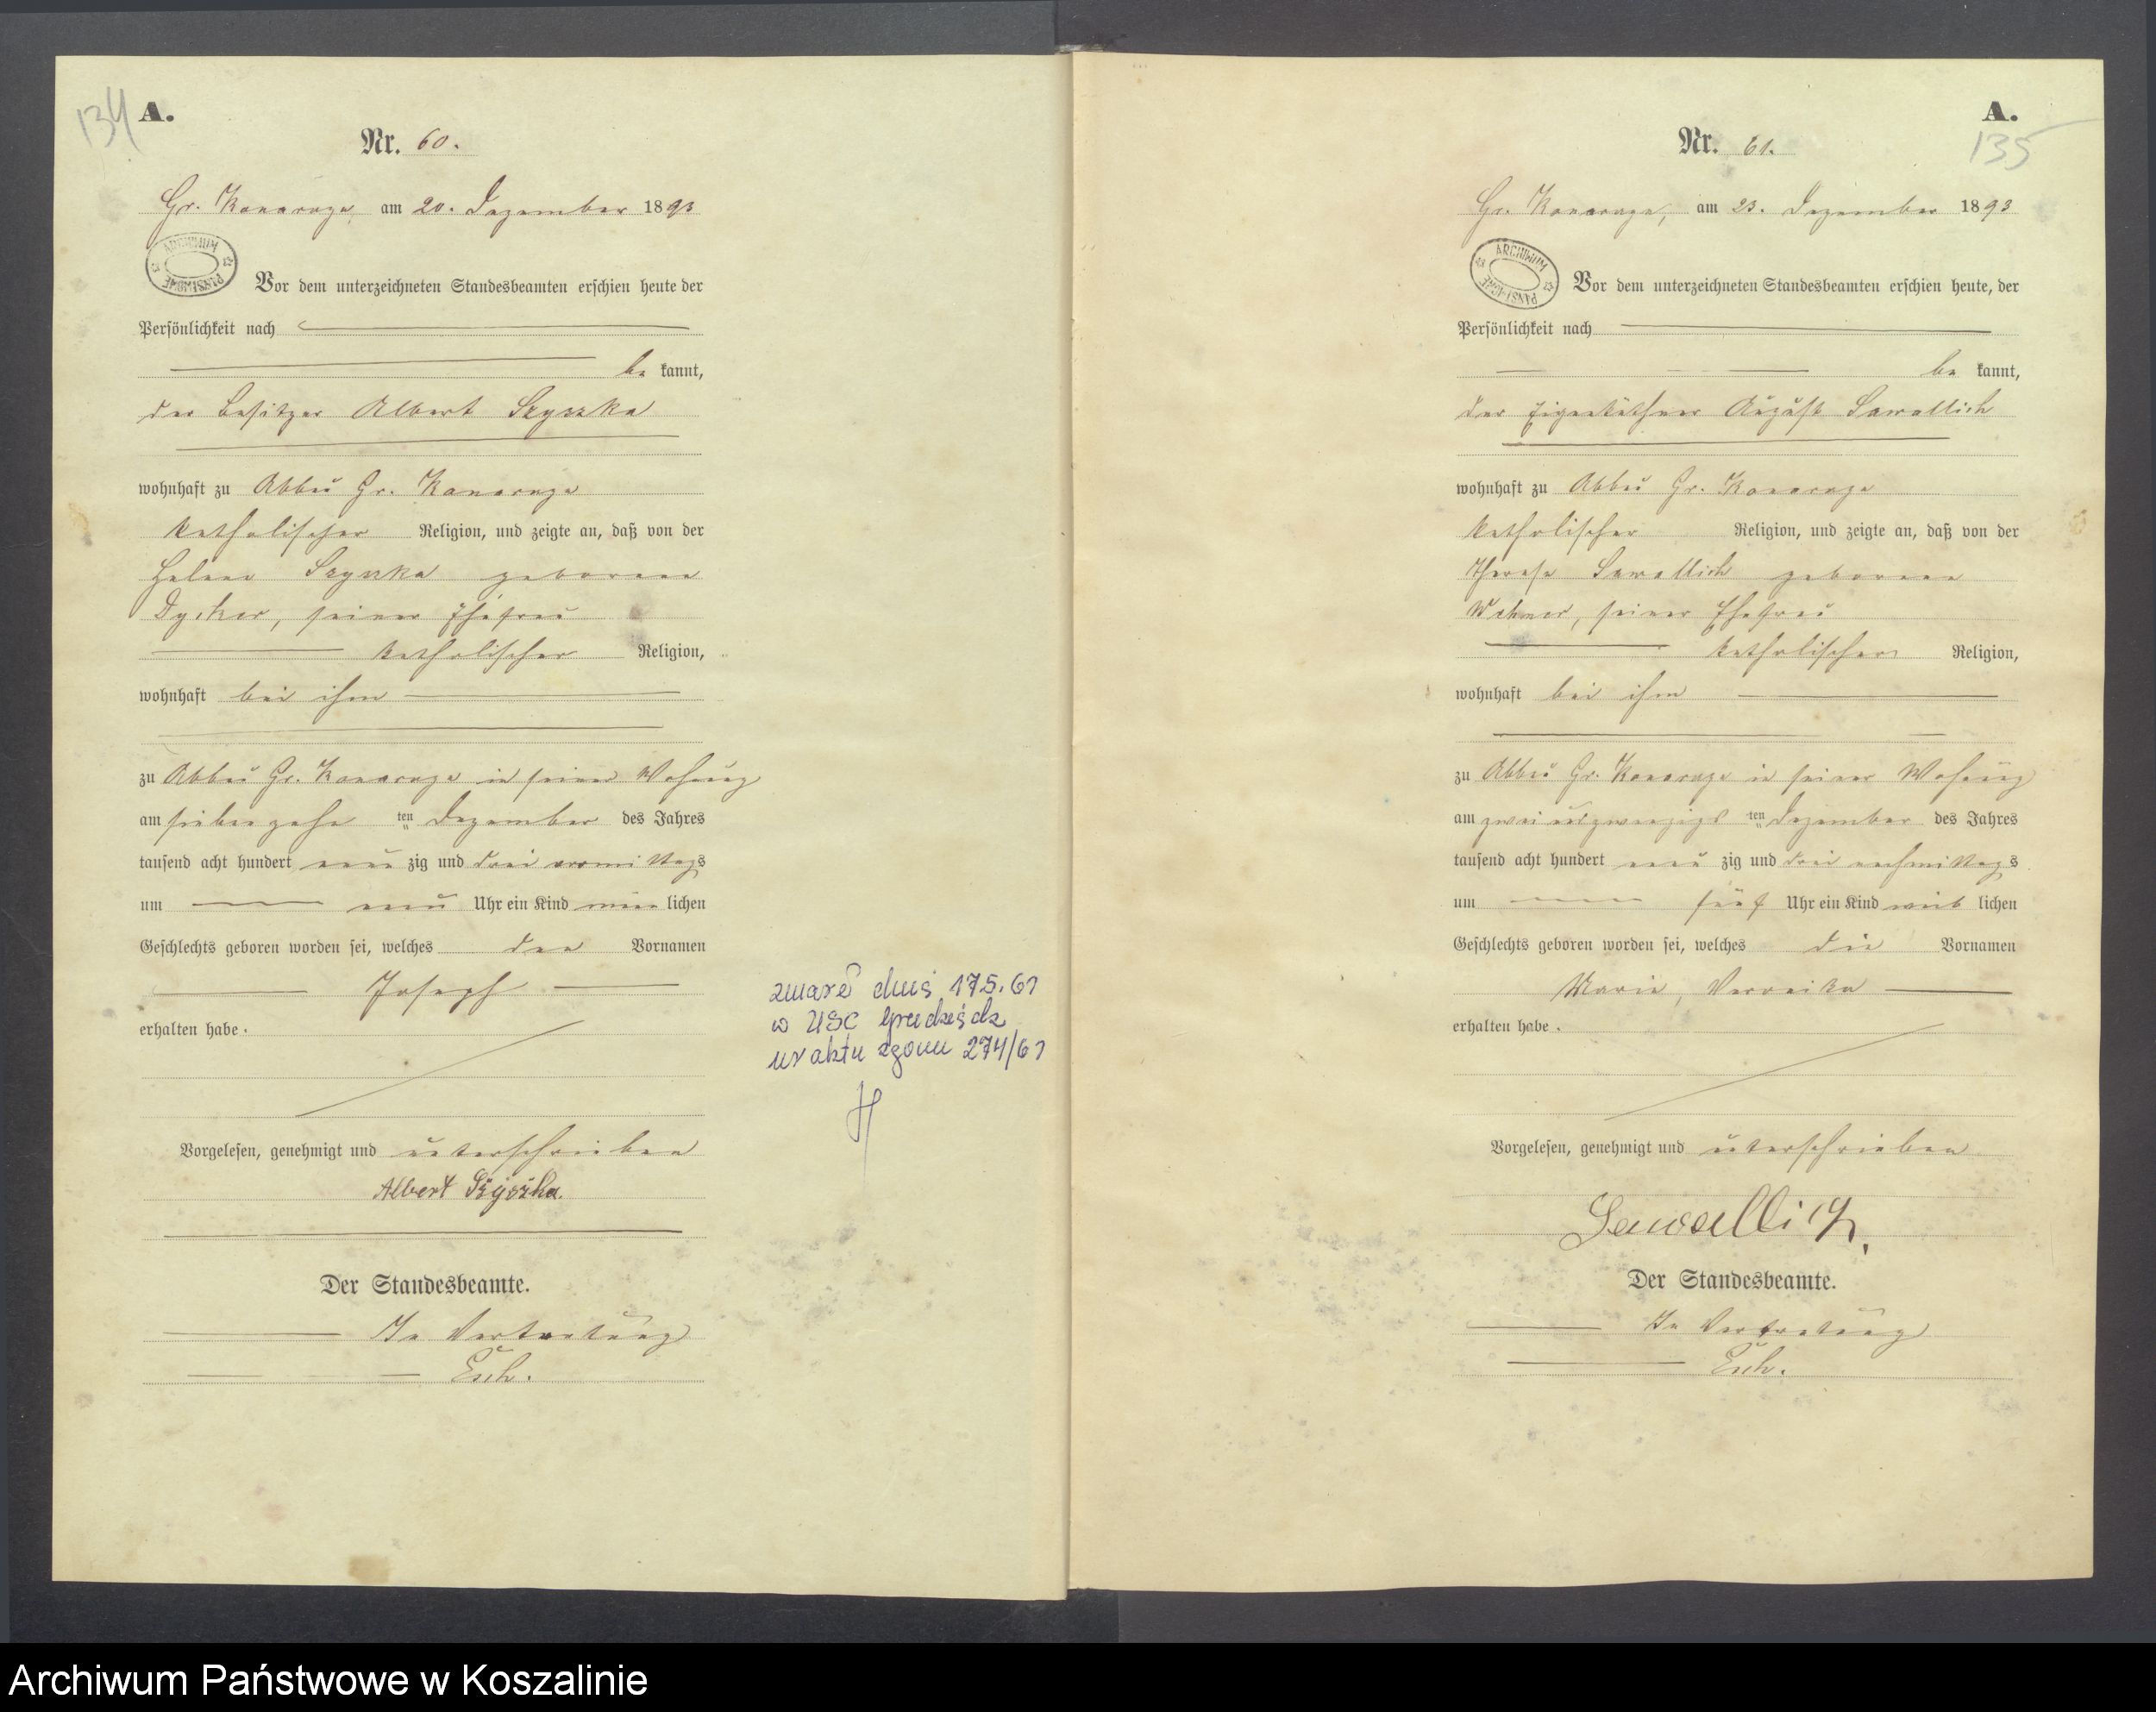 134 A.
Nr. 60.
Gr. Konarczyn, am 20. Dezember 1893
ARCHIWUM PAŃSTWOWE
Vor dem unterzeichneten Standesbeamten erschien heute der
Persönlichkeit nach
be kannt,
der Besitzer Albert Szyszka
wohnhaft zu Abbau Gr.
katholischer Religion, und zeigte an, daß von der
Helene Szyszka geborenen
Dycker, seiner Ehefrau
katholischer Religion,
wohnhaft bei ihm
zu Abbau Gr. in seiner Wohnung
am siebenzehn ten Dezember des Jahres
tausend acht hundert neun zig und drei vormittags
um neun Uhr ein Kind männ lichen
Geschlechts geboren worden sei, welches den Vornamen
Joseph
erhalten habe.
Vorgelesen, genehmigt und unterschrieben
Albert Szyszka.
Der Standesbeamte.
In Vertretung
zmarł dnia 17.5.61
w USC Grudziądz
nr aktu zgonu 274/61
A.
135
Nr. 61.
Gr. Konarczyn, am 23. Dezember 1893
ARCHIWUM PAŃSTWOWE
Vor dem unterzeichneten Standesbeamten erschien heute, der
Persönlichkeit nach
be kannt,
der Eigenkäthner August Sawallich
wohnhaft zu Abbau Gr.
katholischer Religion, und zeigte an, daß von der
Therese Sawallich geborenen
seiner Ehefrau
katholischer Religion,
wohnhaft bei ihm
zu Abbau Gr. in seiner Wohnung
am zwei undzwanzigs ten Dezember des Jahres
tausend acht hundert neun zig und drei nachmittags
um fünf Uhr ein Kind weib lichen
Geschlechts geboren worden sei, welches die Vornamen
Marie, Veronika
erhalten habe.
Vorgelesen, genehmigt und unterschrieben
Sawallich.
Der Standesbeamte.
In Vertretung
Archiwum Państwowe w Koszalinie